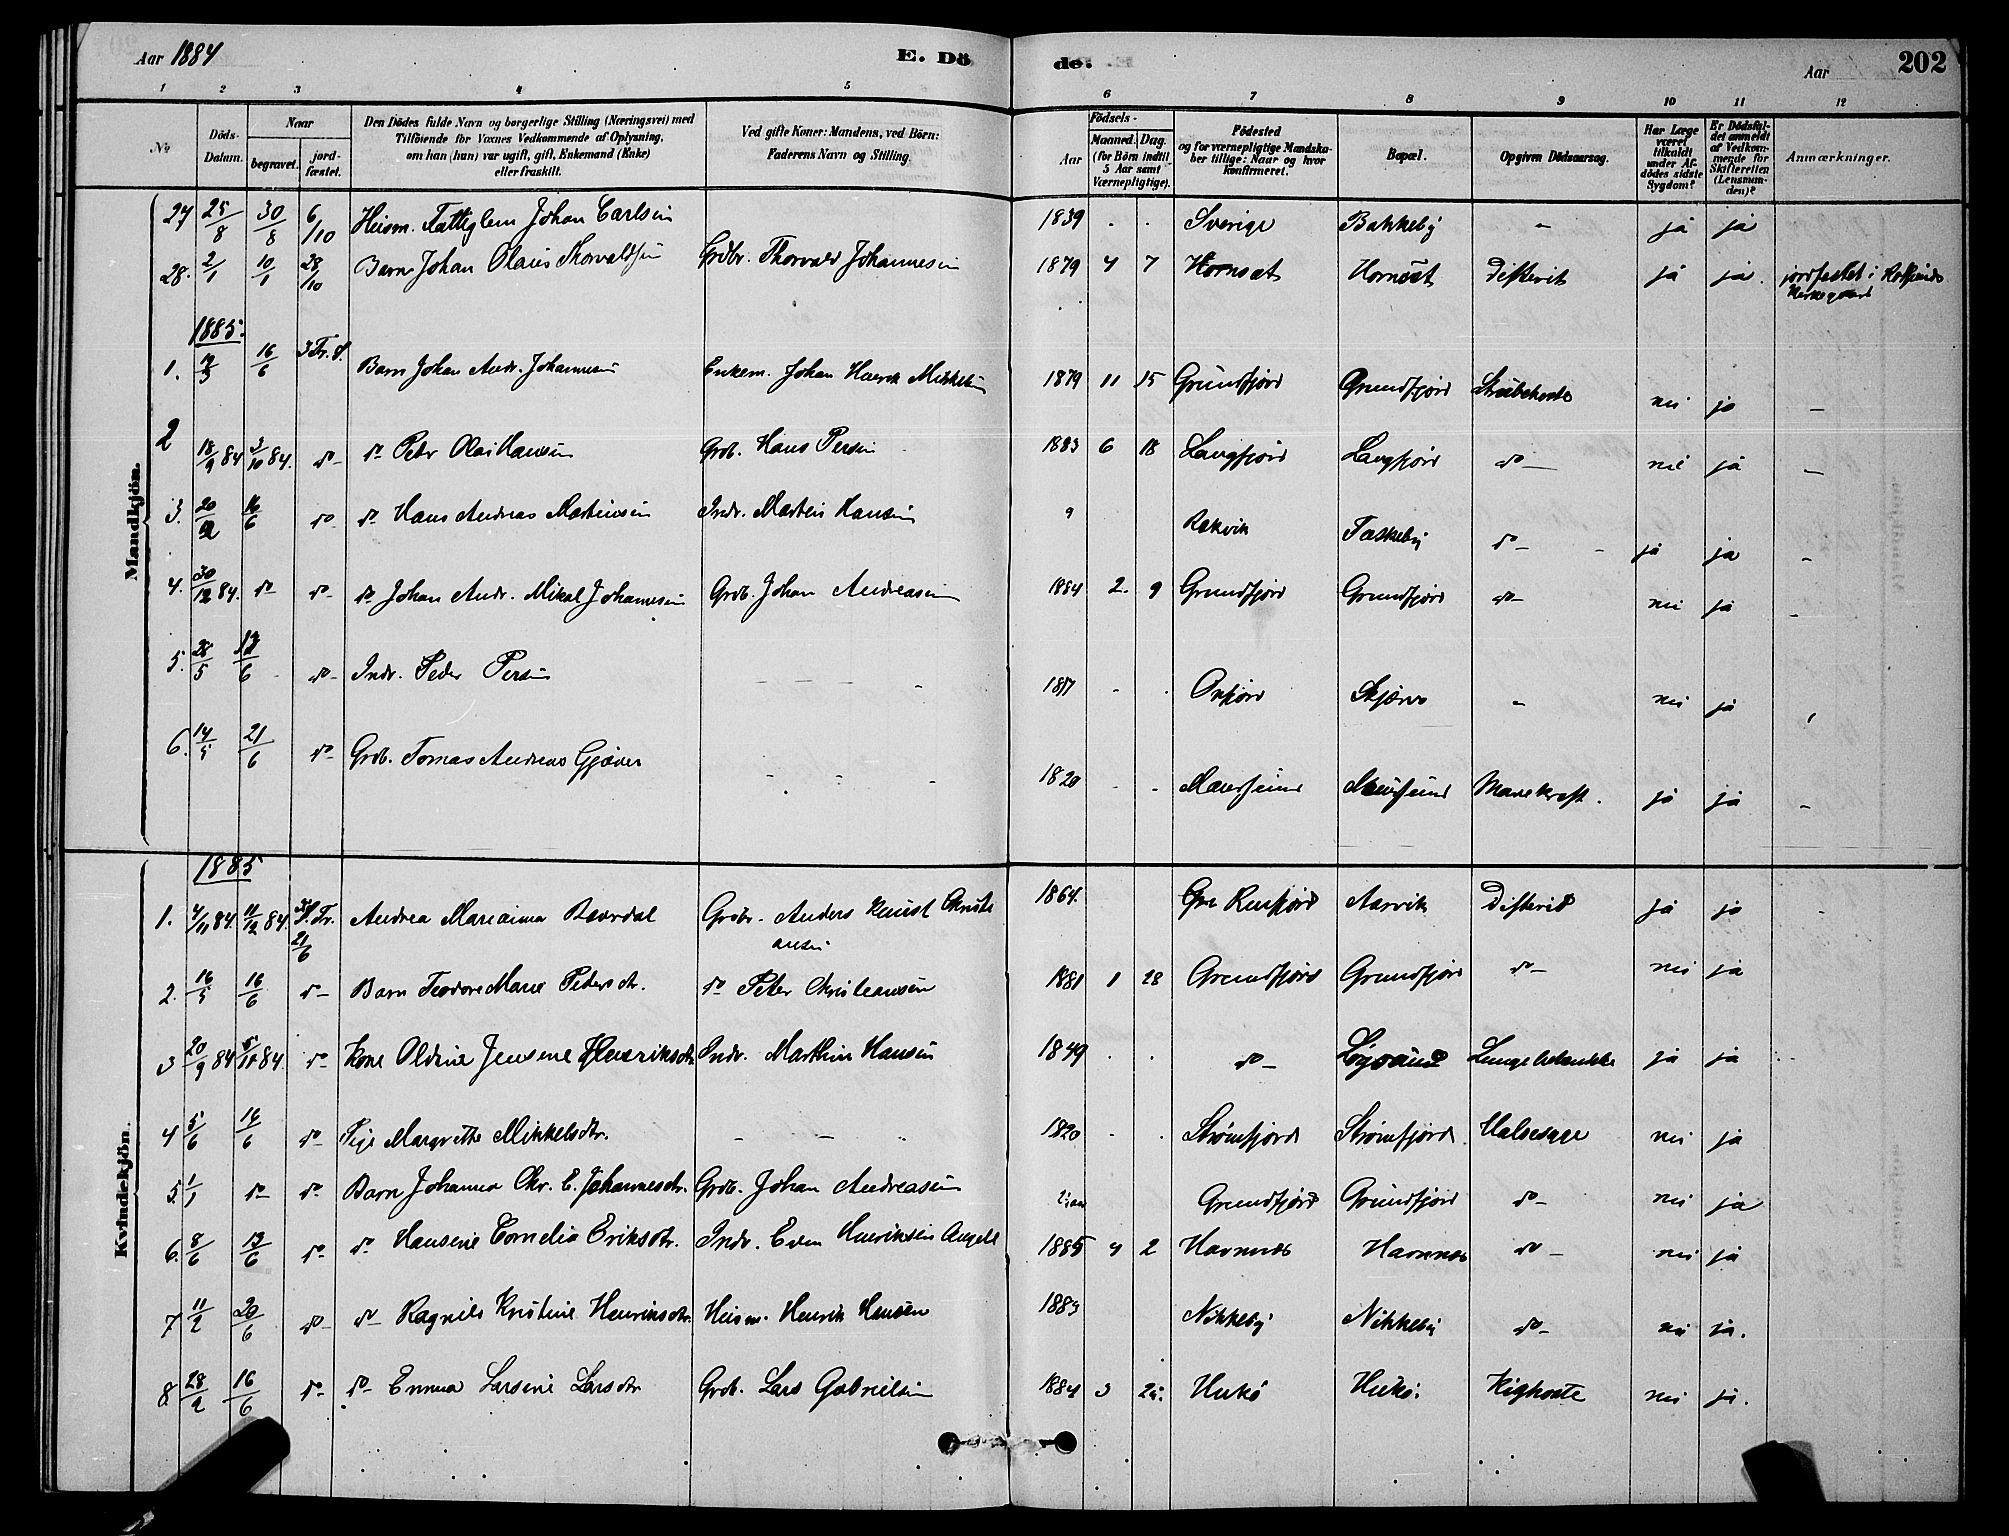 Aar 1884 E. Dö de. Aar 202
1 2 3 4 5 6 7 8 9 10 11 12
No. Döds-Datum. Naar begravet. jord-fæstet. Den Dödes fulde Navn og borgerlige Stilling (Næringsvei) med Tilföiende for Voxnes Vedkommende af Oplysning, om han (hun) var ugift, gift, Enkemand (Enke) eller fraskilt. Ved gifte Koner: Mandens, ved Börn: Faderens Navn og Stilling. Födsels- Aar Maaned. Dag. (for Börn indtil 5 Aar samt Værnepligtige). Födested og for værnepligtige Mandskaber tillige: Naar og hvor konfirmeret. Bopæl. Opgiven Dödsaarsag. Har Læge været tilkaldt under Afdödes sidste Sygdom? Er Dödsfaldet anmeldt af Vedkommende for Skifteretten (Lensmanden)? Anmærkninger.
Mandkjön.
27 25/8 30/8 6/10 Huism. Fattiglem Johan Carlsen 1839 . . Sverige Bakkeby - ja ja
28. 2/1 10/1 28/10 Barn Johan Olaus Thorvaldsen Grdbr. Thorvald Johannesen 1879 4 7 Hornsæt Hornsæt Difterit ja ja. jordfæstet i
1885.
1. 16/6 3 Tr. S. Barn Johan Andr. Johannesen Enkem. Johan Henrik Mikkelsen 1879 11 15 Grundfjord Grundfjord Strubehoste nei ja -
2 18/9 84 3/10 84. do- do Peter Olai Hansen Grdb. Hans Persen 1883 6 18 Langfjord Langfjord do- nei ja -
3. 16/6 do- do Hans Andreas Martinsen Indr. Martin Hansen Rakvik Taskeby do- ja ja -
4. 30/12 84. do- do- do Johan Andr. Mikal Johannesen Grdb. Johan Andreasen 1884 2. 9 Grundfjord Grundfjord do- nei ja -
5. 28/5 do- Indr. Peder Persen - - - - . . Skjærvø - nei ja
6. 14/5 21/6 do- Grdb. Tomas Andreas Gjæver - - - 1820 . . Maursund Maursund Mavekræft. ja ja -
Kvindekjön.
1885
1. 4/11 84. 11/12 84 21/6 Andrea Marianna Grdbr. Anders Knust Christiansen 1864. Aarvik Difterit ja ja -
2. 16/5 16/6 do- Barn Teodore Marie Pedersdtr. do Peter Christiansen 1881 1 28 Grundfjord Grundfjord do- nei ja
3 20/9 84 84. do- Kone Oldine Jensine Henriksdtr. Indr. Marthin Hansen 1849 . . do- Løgsund ja ja
4 5/6 14/6 do- Pige Margrethe Mikkelsdtr. - - - 1820 . . Strømfjord Strømfjord Halsesyge nei ja
5. 1/1 do- do- Barn Johanna Chr. E. Johannesdtr. Grdb. Johan Andreasen Grundfjord Grundfjord do- nei ja
6. 8/6 do- do Hansine Cornelia Eriksdtr. Indr. Henriksen Angell 1885 4 2 Havnnæs Havnnæs do- nei ja
7 11/2 20/6 do- do- Ragnild Kristine Henriksdtr. Huism. Henrik Hansen 1883 Nikkeby Nikkeby do- nei ja.
8. 28/2 16/6 do- do- Emma Larsine Larsdtr. Grdb. Lars Gabrielsen 1884 3 Hukø Hukø. Kighoste nei ja.